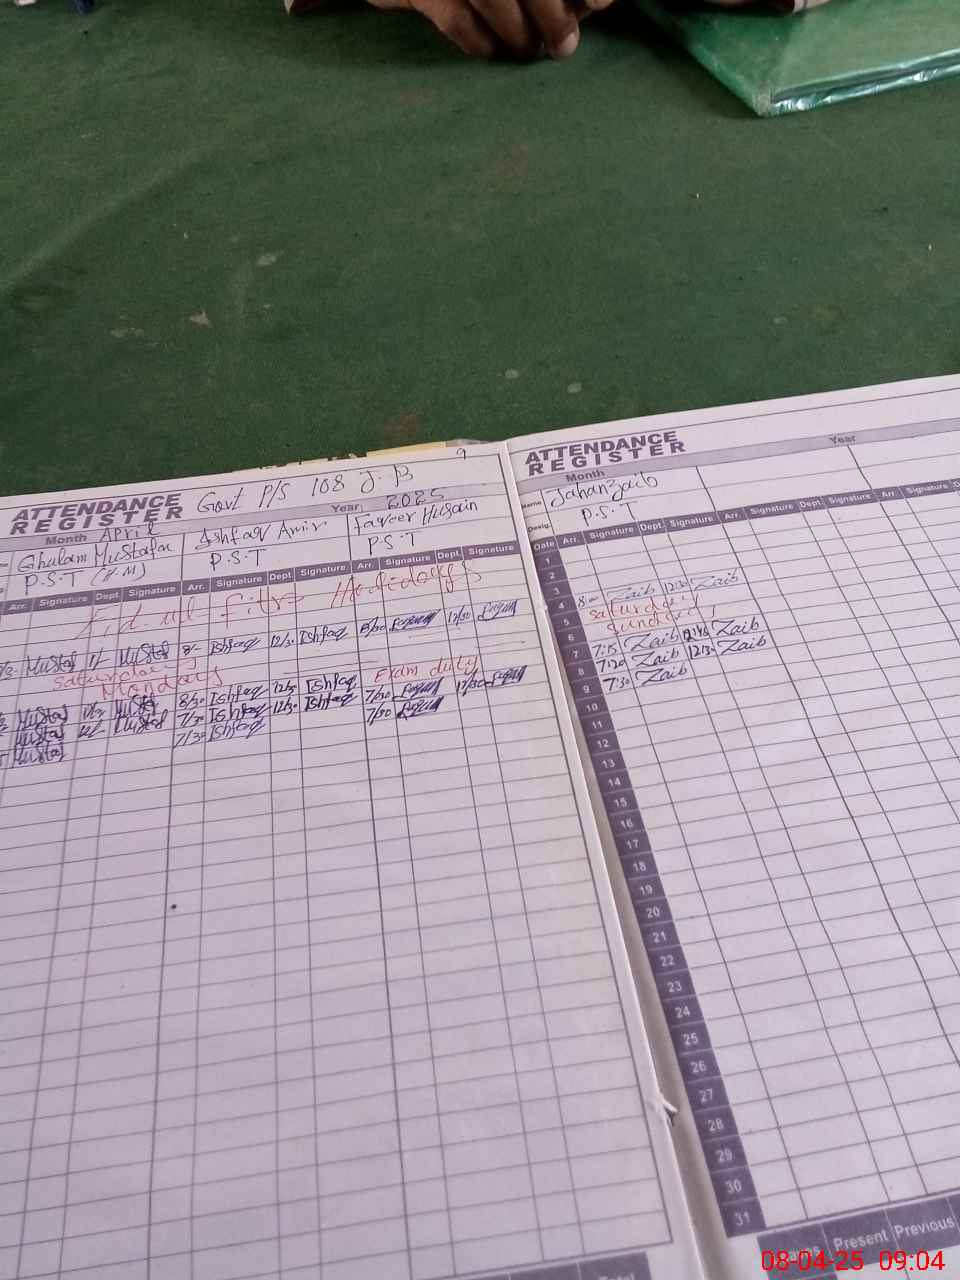 9
ATTENDANCE
REGISTER
Govt P/S 108 J.B
Month April
Year 2025
Ghulam Mustafa
Ashfaq Amir
P.S.T (H.M)
P.S.T
P.S.T
Arr. Signature Dept. Signature Arr. Signature Dept. Signature Arr. Signature Dept. Signature
Eid ul fitre Holidays
8/- Ishfaq 12/30 Ishfaq 8/30 12/30
Saturday
Monday Exam duty
8/30 Ishfaq 12/30 Ishfaq 7/30 12/30
7/30 Ishfaq 12/30 Ishfaq 7/30
7/30 Ishfaq
ATTENDANCE
REGISTER
Month
Year
Name Jahanzaib
Desig. P.S.T
Date Arr. Signature Dept. Signature Arr. Signature Dept. Signature Arr. Signature
1
2
3
4 8-- Zaib 12/30 Zaib
5 Saturday
6 Sunday
7 7:15 Zaib Zaib
8 7:20 Zaib 12/30 Zaib
9 7:30 Zaib
10
11
12
13
14
15
16
17
18
19
20
21
22
23
24
25
26
27
28
29
30
31
Present Previous
08-04-25 09:04